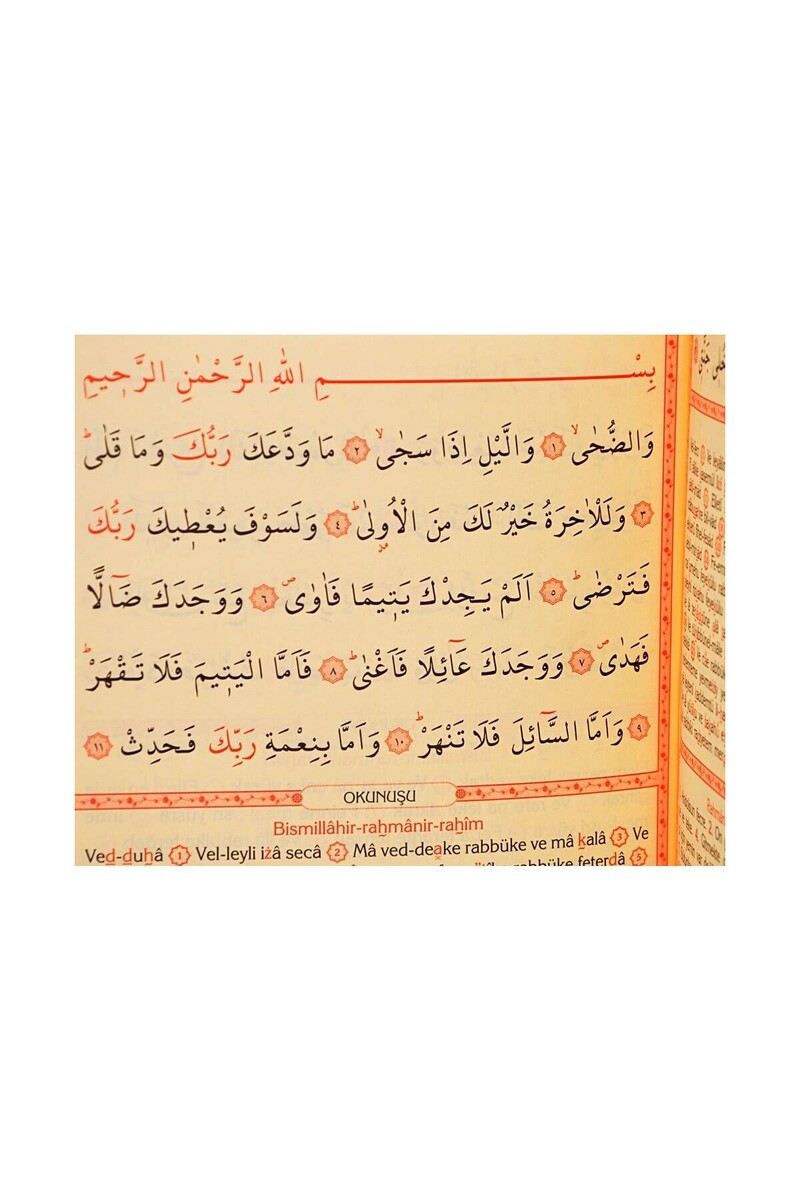 بِسْمِ اللهِ الرَّحْمٰنِ الرَّحٖيمِ
وَالضُّحٰىۙ ﴿١﴾ وَالَّيْلِ اِذَا سَجٰىۙ ﴿٢﴾ مَا وَدَّعَكَ رَبُّكَ وَمَا قَلٰىؕ
﴿٣﴾ وَلَلْاٰخِرَةُ خَيْرٌ لَكَ مِنَ الْاُولٰىؕ ﴿٤﴾ وَلَسَوْفَ يُعْطٖيكَ رَبُّكَ
فَتَرْضٰىؕ ﴿٥﴾ اَلَمْ يَجِدْكَ يَتٖيمًا فَاٰوٰىࣕ ﴿٦﴾ وَوَجَدَكَ ضَٓالًّا
فَهَدٰىࣕ ﴿٧﴾ وَوَجَدَكَ عَٓائِلًا فَاَغْنٰىؕ ﴿٨﴾ فَاَمَّا الْيَتٖيمَ فَلَا تَقْهَرْؕ
﴿٩﴾ وَاَمَّا السَّٓائِلَ فَلَا تَنْهَرْؕ ﴿١٠﴾ وَاَمَّا بِنِعْمَةِ رَبِّكَ فَحَدِّثْ ﴿١١﴾
OKUNUŞU
Bismillâhir-raḥmânir-raḥîm
Veḏ-ḏuḥâ 1 Vel-leyli iżâ secâ 2 Mâ ved-deake rabbüke ve mâ ḵalâ 3 Ve
rabbüke feterdâ 5